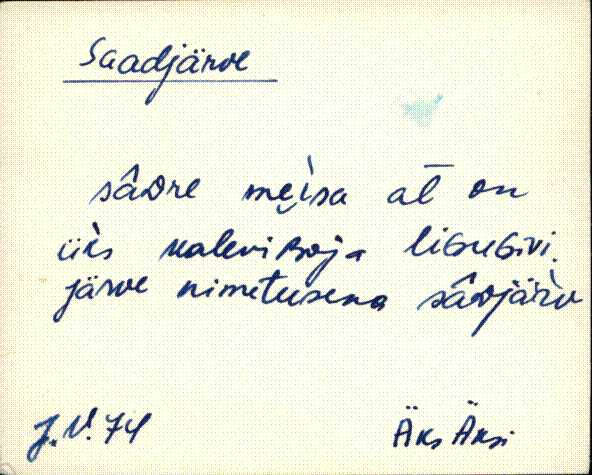 Saadjärve
sâᴅre mẹìsa al̄ on
üks kaleviᴘoja liʙuɢivi.
järve nimetusena sâᴅjär̀v
J.V. 74 Äks Äksi